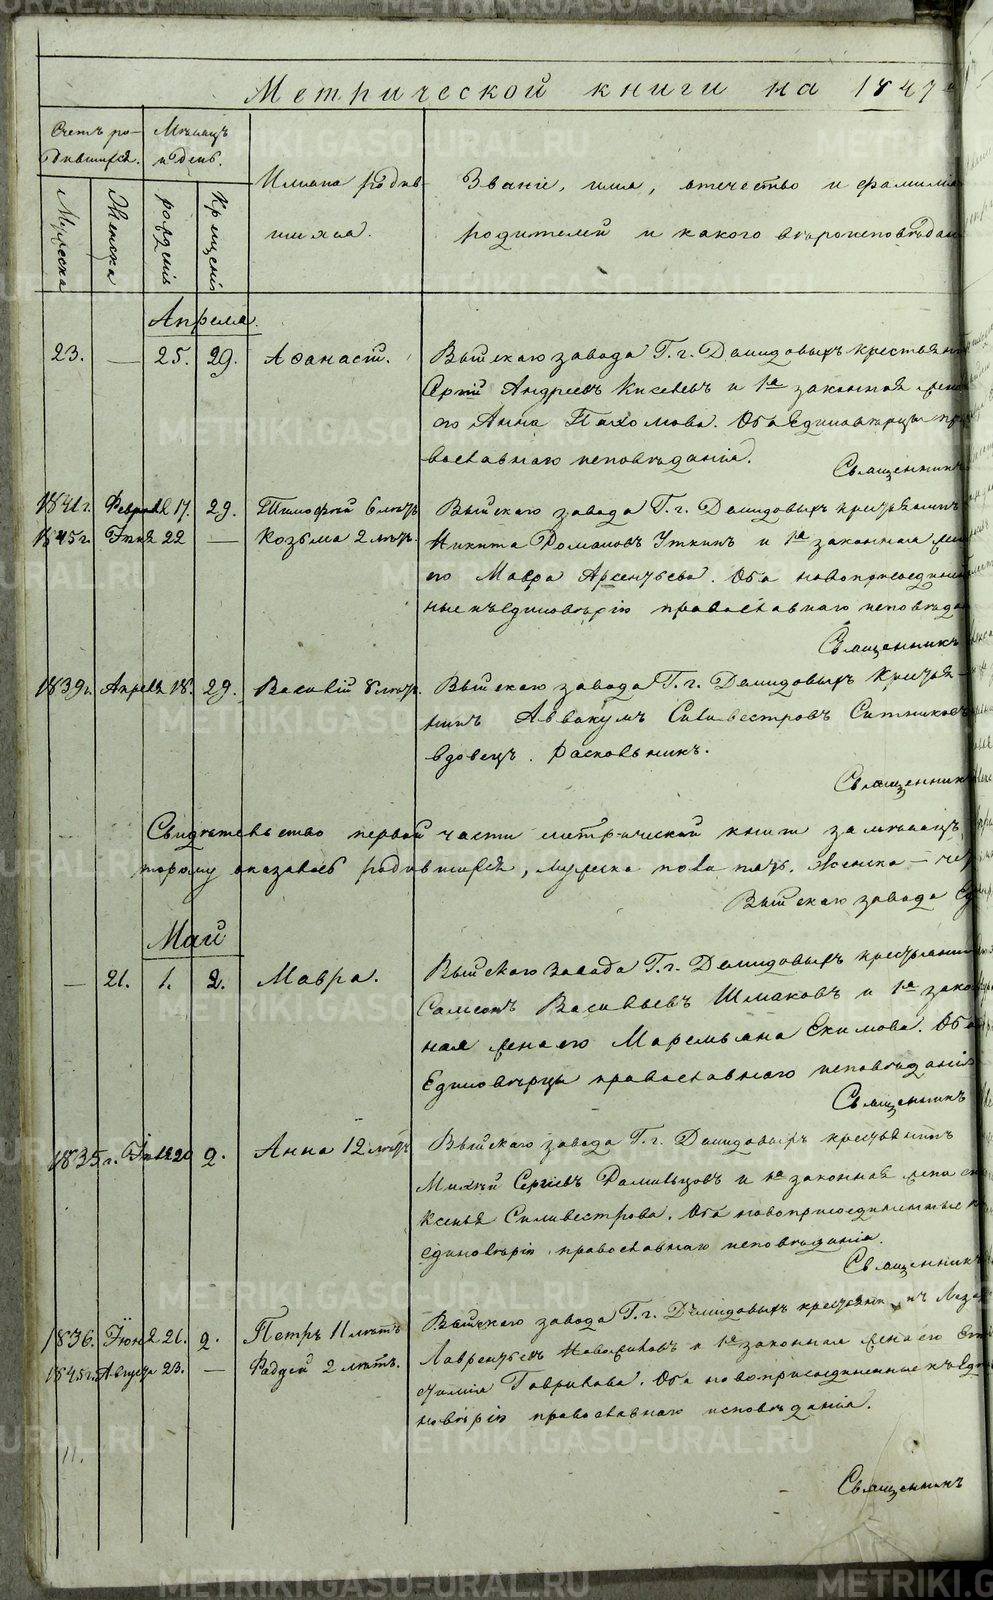 Метрической книги на 1847
Счетъ ро-
дившихся.
Мѣсяцъ
и день.
Имяна родив-
шихся.
Званіе, имя, отечество и фамилія
родителей и какого вѣроисповѣдан
Мужеска
Женска
рожденія
Крещенія
Апреля.
23. — 25. 29. Аѳанасій. Выйскаго завода Г. г. Демидовыхъ крестьянинъ
Сергій Андреевъ Киселевъ и 1я законная жена
его Анна Пахомова. Оба Единовѣрцы пра
вославнаго исповѣданія.
Священникъ
1841г. Февраля 17. 29. Тимофей 6 лѣтъ Выйскаго завода Г. г. Демидовыхъ крестьянинъ
1845г. Іюня 22 — Козьма 2 лѣтъ. Никита Романовъ Уткинъ и 1я законная жена
его Мавра Арсентьева. Оба новоприсоединен
ные къ Единовѣрію православнаго исповѣда
Священникъ
1839г. Апреля 18. 29. Василій 8 лѣтъ. Выйскаго завода Г. г. Демидовыхъ крестья-
нинъ Аввакумъ Силивестровъ Ситниковъ
вдовецъ. Раскольникъ.
Священникъ
Свидѣтельство первой части метрической книги за мѣсяцъ
торому оказалось родившихся, мужеска пола пять. Женска — чет
Выйскаго завода Ед
Май
— 21. 1. 2. Мавра. Выйскаго завода Г. г. Демидовыхъ крестьянинъ
Самсонъ Васильевъ Шмаковъ и 1я закон
ная жена его Маремьяна Екимова. Оба
Единовѣрцы православнаго исповѣданія
Священникъ
1835г. 20 2. Анна 12 лѣтъ Выйскаго завода Г. г. Демидовыхъ крестьянинъ
Михей Сергіевъ и 1я законная жена его
Ксенья Силивестрова. Оба новоприсоединенные к
единовѣрію православнаго исповѣданія.
Священникъ
1836. Іюня 21. 2. Петръ 11 лѣтъ Выйскаго завода Г. г. Демидовыхъ крестьянинъ
1845г. Августа 23. — Фадей 2 лѣтъ. Лаврентьевъ и 1я законная жена его
Гаврилова. Оба новоприсоединенные къ Еди
новѣрію православнаго исповѣданія.
11.
Священникъ
METRIKI.GASO-URAL.RU